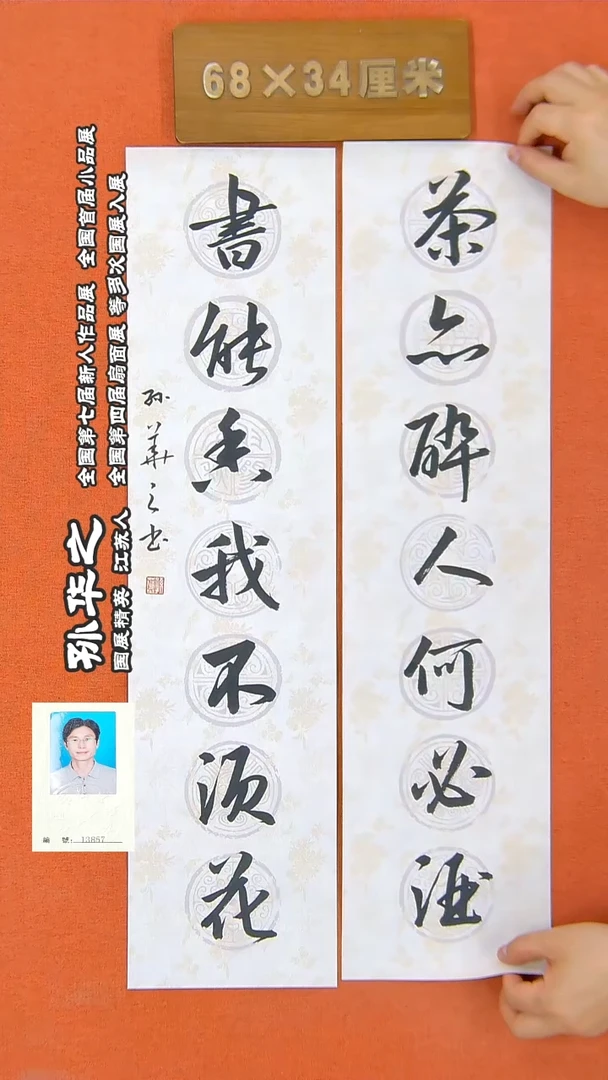 68×34厘米
茶亦醉人何必酒
書能香我不须花
孙華之书
孙华之
国展精英 江苏人
全国第七届新人作品展 全国首届小品展
全国第四届扇面展 等多次国展入展